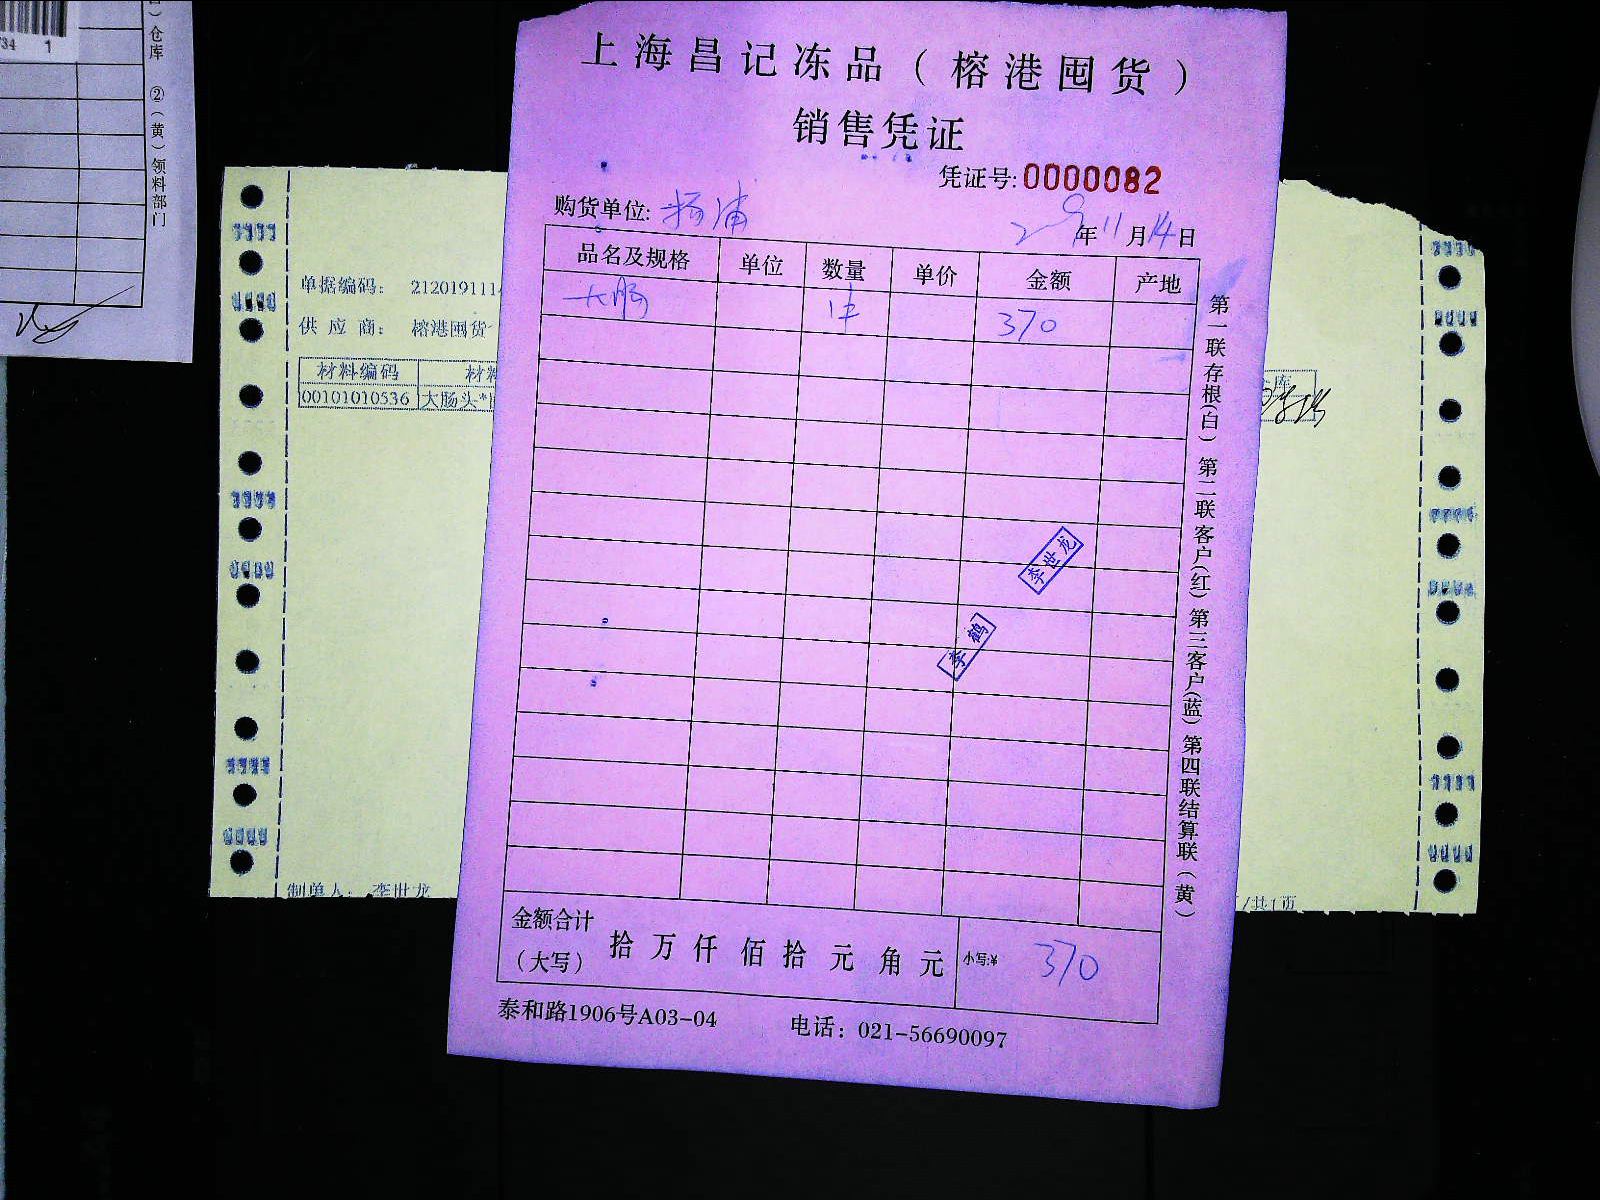 上海昌记冻品（榕港囤货）
销售凭证
凭证号:0000082
购货单位: 杨浦
年11月14日
品名及规格 单位 数量 单价 金额 产地
大肠 1件 370
李世龙
李鹤
金额合计（大写） 拾 万 仟 佰 拾 元 角 元 小写:¥ 370
泰和路1906号A03-04 电话：021-56690097
第一联存根(白) 第二联客户(红) 第三客户(蓝) 第四联结算联(黄)
单据编码： 2120191114
供 应 商： 榕港囤货
材料编码 材料
00101010536 大肠头*
库
制单人： 李世龙
/共1页
）仓库 ②（黄）领料部门
734 1